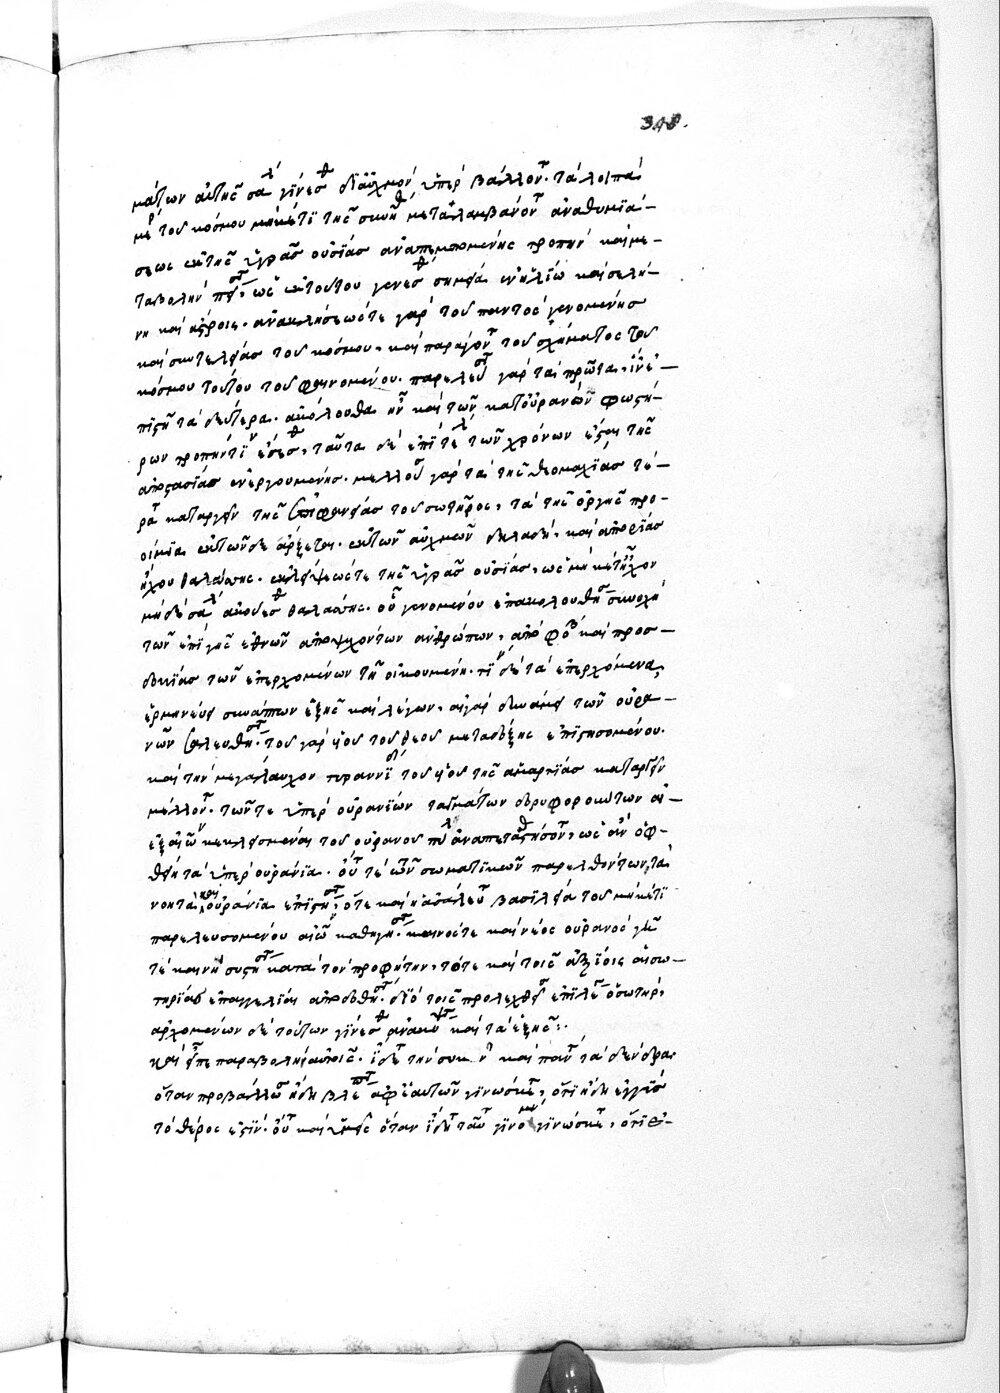 μάτων αὐτῆς σάλ γίνεσθ δι' αὐχμὸν ὑπερβάλλοντ. τὰ λοιπὰ
μέρ τοῦ κόσμου μηκέτι τῆς συνήθ μεταλαμβάνοντ ἀναθυμιά-
σεως ἐκ τῆς ὑγρᾶς οὐσίας ἀναπεμπομένης τροπὴν καὶ με-
ταβολὴν ὡς ἐκ τούτου γενέσθ σημεῖα ἐν ἡλίω καὶ σελή-
νη καὶ ἄστροις. γάρ τοῦ παντὸς γενομένης
καὶ συντελείας τοῦ κόσμου, καὶ παράγοντ τοῦ σχήματος τοῦ
κόσμου τούτου τοῦ φαινομένου. παρελεύσ γὰρ τὰ πρῶτα, ἵν' ἐ-
πιστῆ τὰ δεύτερα. ἀκόλουθα ἦν καὶ τῶν κατ' οὐρανὸν φωστή-
ρων τροπήν τιν ἔσεσθ, ταῦτα δὲ ἐπὶ τέλ τῶν χρόνων ἔσται τῆς
ἀποστασίας ἐνεργουμένης. μελλούσ γὰρ τὰ τῆς θεομαχίας τέ-
ρατ καταργεῖν τῆς ἐπιφανείας τοῦ σωτῆρος, τὰ τῆς ὀργῆς προ-
οίμια ἐκ τῶνδε ἄρξεται. ἐκ τῶν αὐχμῶν δηλαδή, καὶ ἀπορίας
ἤχου θαλάσσης. ἐκλείψεως τε τῆς ὑγρᾶς οὐσίας, ὡς μηκέτ' ἦχον
μηδὲ σάλ ἀκούεσθ θαλάσσης. οὗ γενομένου ἐπακολουθήσ συνοχὴ
τῶν ἐπὶ γῆς ἐθνῶν ἀποψυχόντων ἀνθρώπων, ἀπὸ φόβ καὶ προσ-
δοκίας τῶν ἐπερχομένων τῇ οἰκουμένη. τίν δὲ τὰ ἐπερχόμενα,
ἑρμηνεύει συνάπτων ἑξῆς καὶ λέγων, αἱ γὰρ δυνάμεις τῶν οὐρα-
νῶν σαλευθήσ. τοῦ γὰρ υἱοῦ τοῦ θεοῦ μετὰ δόξης ἐπιστησομένου.
καὶ τὴν μεγάλαυχον τυραννίδ τοῦ υἱοῦ τῆς ἁμαρτίας καταργεῖν
μέλλοντ. τῶν τε ὑπερουρανίων ταγμάτων δορυφορούντων αἱ
ἐξ αἰών κεκλεισμέναι τοῦ οὐρανοῦ πύλ ἀναπετασθήσοντ, ὡς ἂν ὀφ-
θῆ τὰ ὑπερουράνια. οὕτ τε τῶν σωματικῶν παρελθόντων, τὰ
νοητὰ καὶ οὐράνια ἐπιστήσ, ὅτε καὶ ἡ ἀσάλευτ βασιλεία τοῦ μηκέτι
παρελευσομένου αἰῶν καθηγήσ. καινός τε καὶ νέος οὐρανὸς γῆ
τε καινὴ συστήσ κατὰ τὸν προφήτην, τότε καὶ τοῖς ἀξίοις αἱ σω-
τηρίας ἐπαγγελίαι ἀποδοθήσ. διὸ τοῖς προλεχθεῖσ ἐπιλέγ ὁ σωτήρ,
ἀρχομένων δὲ τούτων γίνεσθ ἀνακύψατ καὶ τὰ ἑξῆς:.
καὶ εἶπε παραβολὴν αὐτοῖς. ἴδετ τὴν συκῆν καὶ πάντ τὰ δένδρα
ὅταν προβάλλωσ ἤδη βλέποντ ἀφ' ἑαυτῶν γινώσκετ, ὅτι ἤδη ἐγγὺς
τὸ θέρος ἐστίν. οὕτ καὶ ὑμεῖς ὅταν ἴδητ ταῦτ γινόμεν γινώσκετ, ὅτι ἐ-